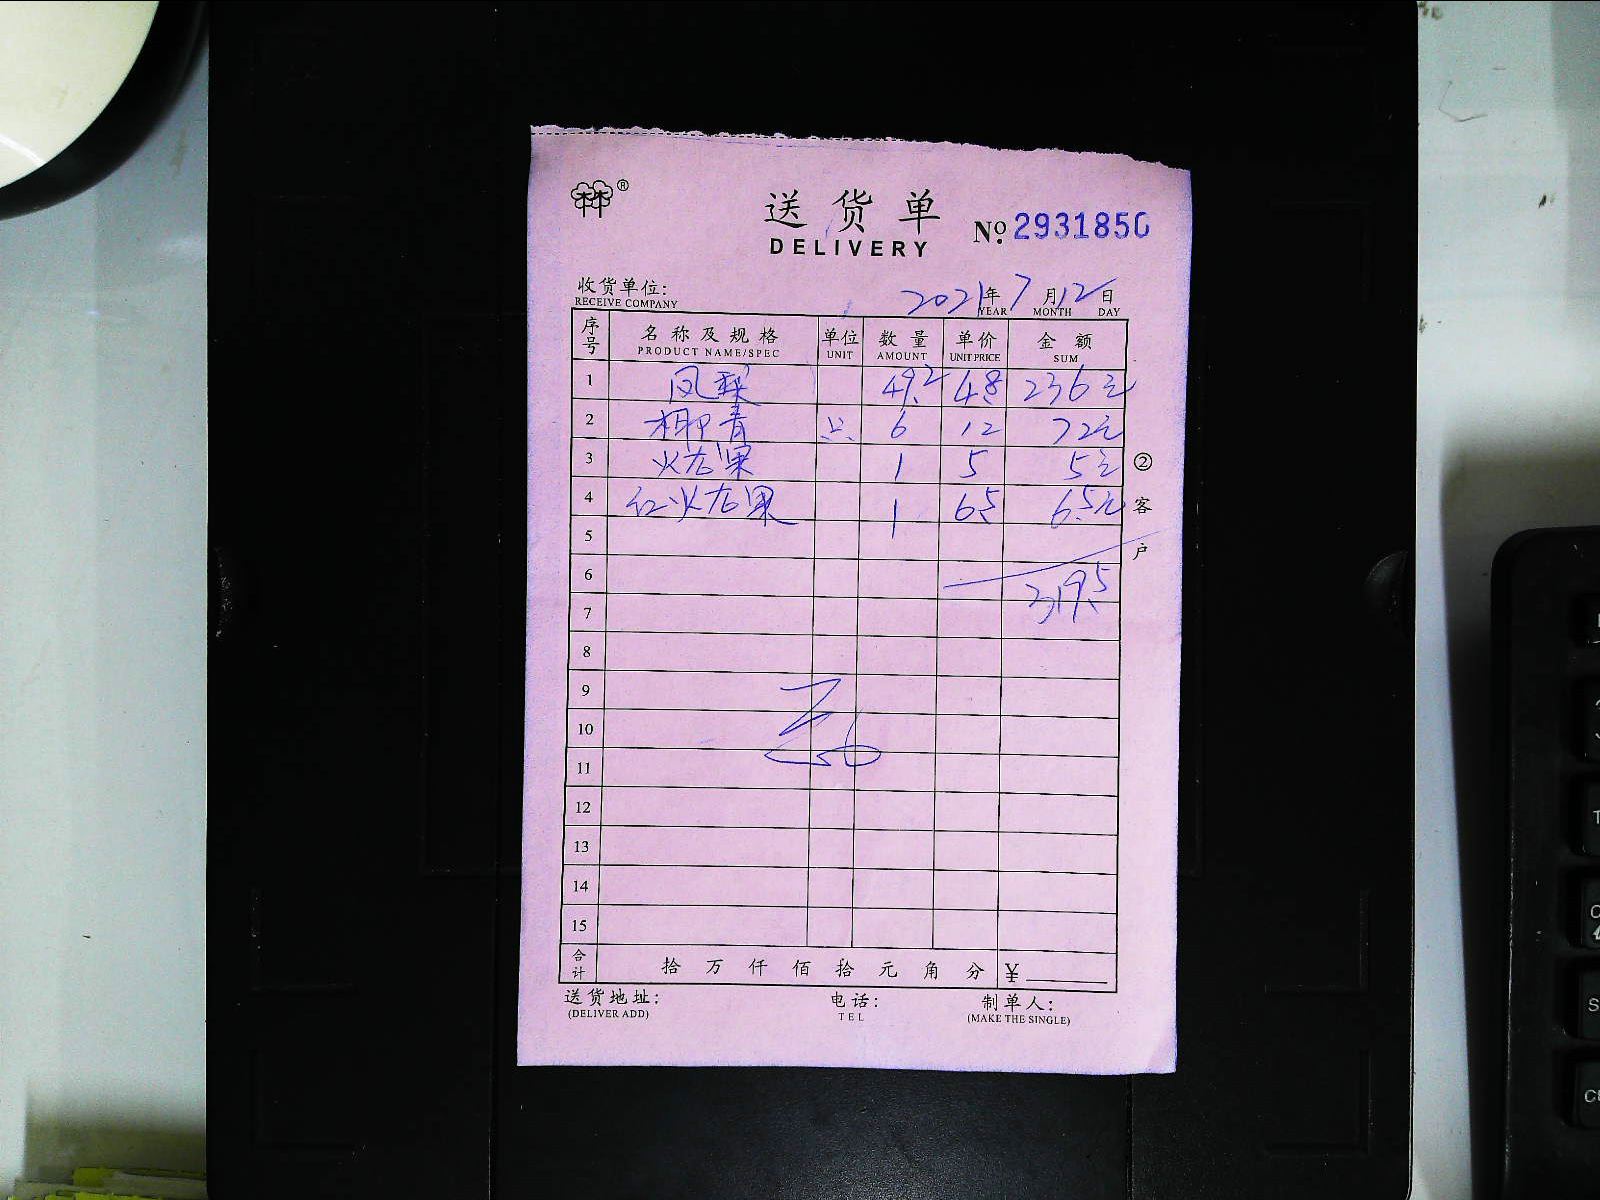 林®
送货单 No. 2931850
DELIVERY
收货单位: 2021年7月12日
RECEIVE COMPANY YEAR MONTH DAY
序号 名称及规格 单位 数量 单价 金额
PRODUCT NAME/SPEC UNIT AMOUNT UNIT PRICE SUM
1 凤梨 49.2 4.8 236元
2 椰青 只 6 12 72元
3 火龙果 1 5 5元
4 红火龙果 1 6.5 6.5元
②客户
5
6 319.5
7
8
9
10
11
12
13
14
15
合计 拾 万 仟 佰 拾 元 角 分 ¥
送货地址: 电话: 制单人:
(DELIVER ADD) TEL (MAKE THE SINGLE)